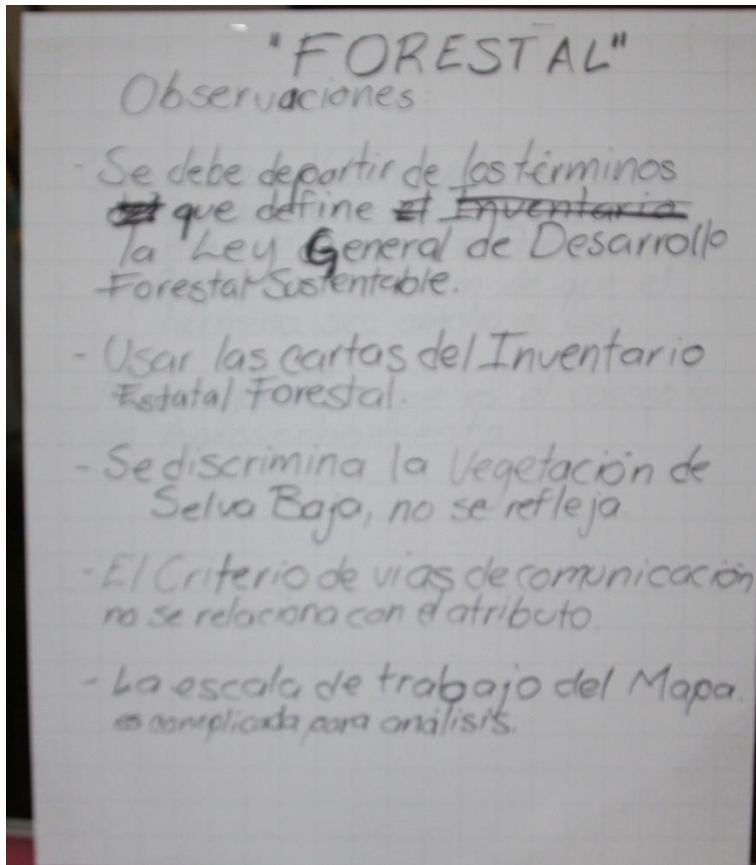 "FORESTAL"
Observaciones:
- Se debe departir de los términos
que define el Inventario
la Ley General de Desarrollo
Forestal Sustentable.
- Usar las cartas del Inventario
Estatal Forestal.
- Se discrimina la Vegetación de
Selva Baja, no se refleja
- El Criterio de vias de comunicación
no se relaciona con el atributo.
- La escala de trabajo del Mapa.
es complicada para análisis.